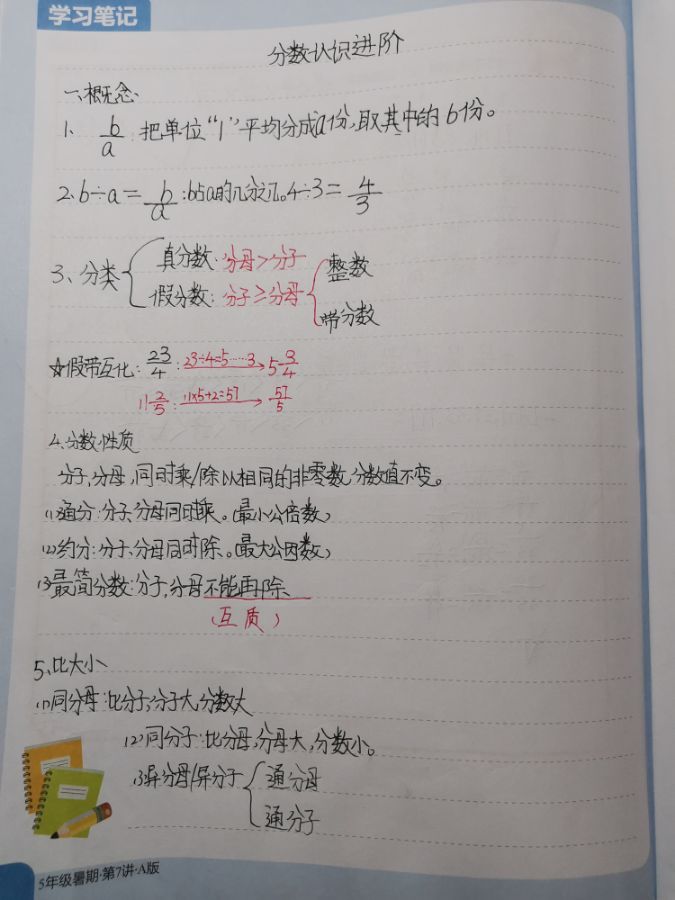 学习笔记
分数认识进阶
一、概念、
1、 b/a 把单位“1”平均分成a份,取其中的b份。
2、b÷a=b/a:b占a的几分之几。4÷3=4/3
3、分类{ 真分数:分母>分子
假分数:分子≥分母 { 整数
带分数
☆假带互化:23/4:23÷4=5……3→5 3/4
11 2/5:11×5+2=57→57/5
4、分数性质
分子,分母,同时乘/除以相同的非零数,分数值不变。
(1)通分:分子、分母同时乘。(最小公倍数)
(2)约分:分子、分母同时除。(最大公因数)
(3)最简分数:分子,分母不能再除
(互质)
5、比大小
(1)同分母:比分子,分子大,分数大
(2)同分子:比分母,分母大,分数小。
(3)异分母/异分子{ 通分母
通分子
5年级暑期·第7讲·A版